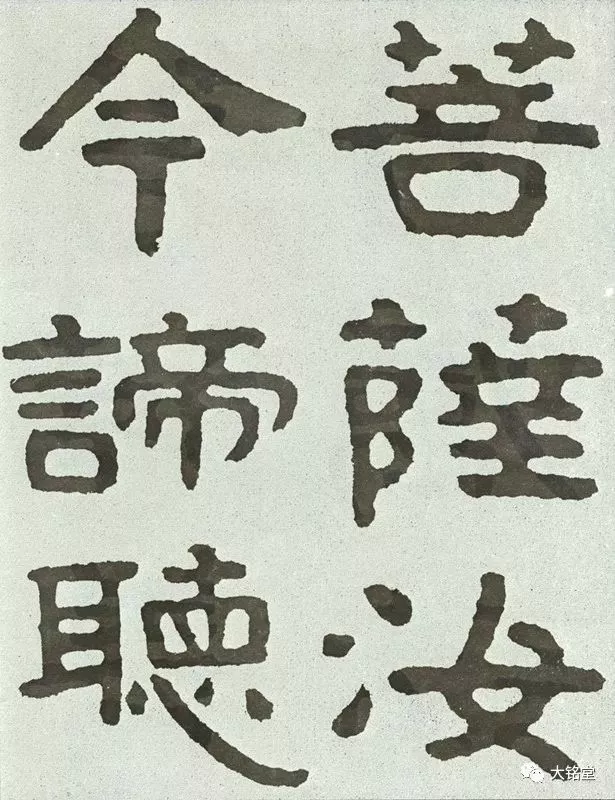 菩薩汝
今諦聽
大铭堂